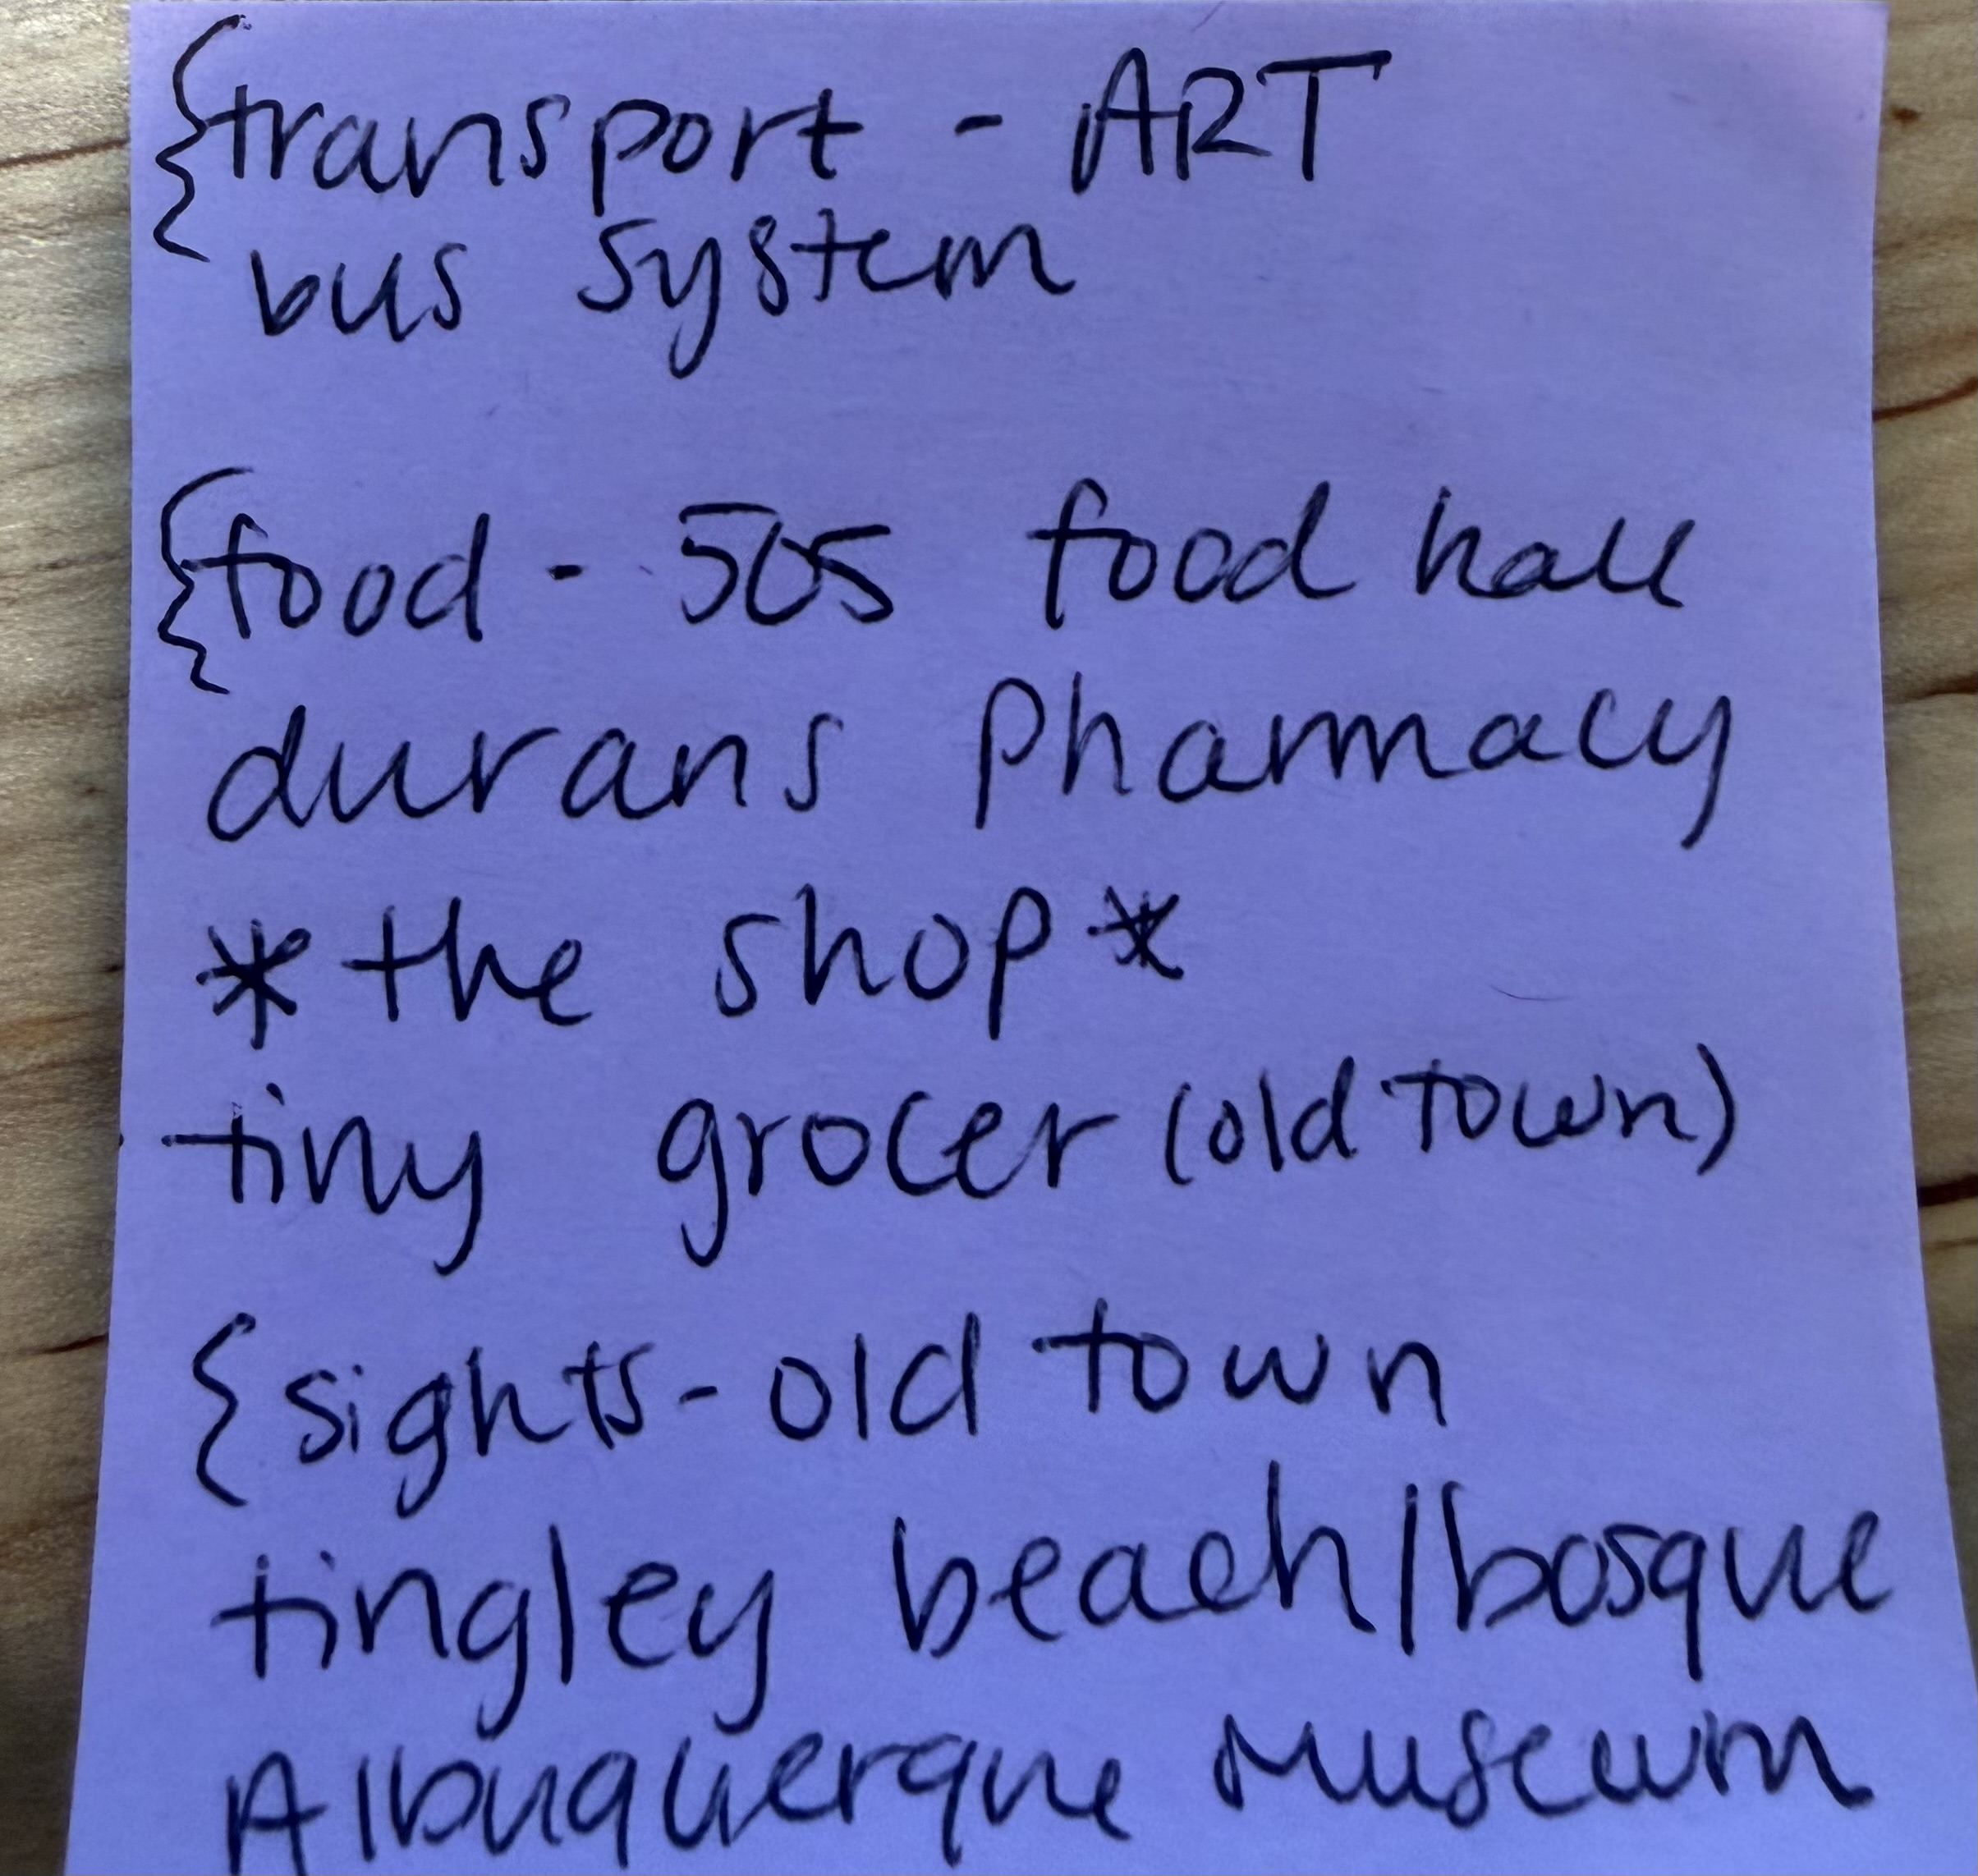 {transport - ART
bus system
{food - 505 food hall
durans pharmacy
* the shop *
tiny grocer (old town)
{sights - old town
tingley beach/bosque
Albuquerque Museum